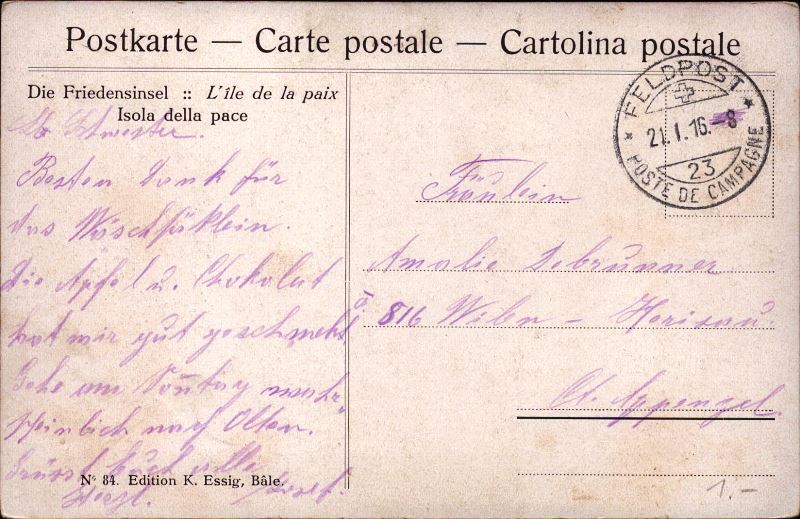 Postkarte — Carte postale — Cartolina postale
Die Friedensinsel :: L'île de la paix
Isola della pace
Lb Schwester.
Besten Dank für
das Wäschpäklein.
Die Äpfel u. Chokolat
hat mir gut geschmekt
Gehe am Sonntag wahr
scheinlich nach Olten.
Grüsst Euch alle
Herzl. Josef.
No 84. Edition K. Essig, Bâle.
FELDPOST
21.I.16.-8
23
POSTE DE CAMPAGNE
Fräulein
Amalie Debrunner
816 Wilen - Herisau
Ct. Appenzel
1.-